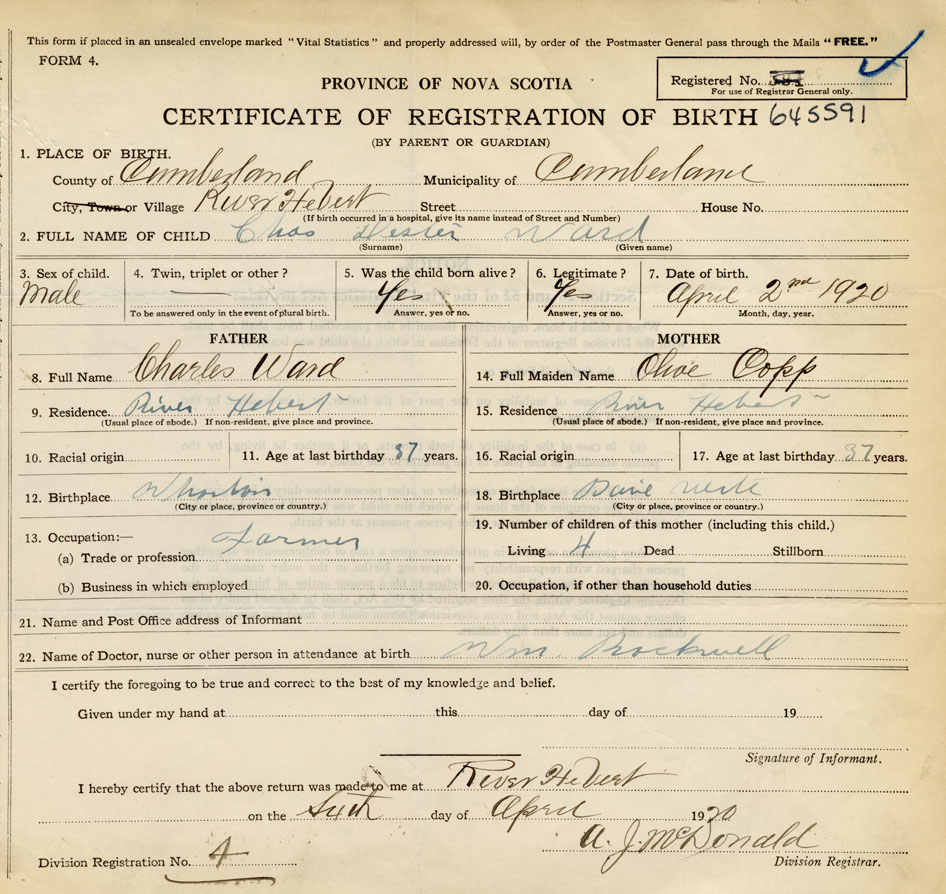 This form if placed in an unsealed envelope marked "Vital Statistics" and properly addressed will, by order of the Postmaster General pass through the Mails "FREE."
FORM 4.
Registered No.
For use of Registrar General only.
PROVINCE OF NOVA SCOTIA
CERTIFICATE OF REGISTRATION OF BIRTH 645591
(BY PARENT OR GUARDIAN)
1. PLACE OF BIRTH.
County of Cumberland Municipality of Cumberland
City, Town or Village River Hebert Street House No.
(If birth occurred in a hospital, give its name instead of Street and Number)
2. FULL NAME OF CHILD Chas Lester Ward
(Surname) (Given name)
3. Sex of child. 4. Twin, triplet or other? 5. Was the child born alive? 6. Legitimate? 7. Date of birth.
Male Yes Yes April 2nd 1920
To be answered only in the event of plural birth. Answer, yes or no. Answer, yes or no. Month, day, year.
FATHER MOTHER
8. Full Name Charles Ward 14. Full Maiden Name Olive Copp
9. Residence. River Hebert 15. Residence River Hebert
(Usual place of abode.) If non-resident, give place and province. (Usual place of abode.) If non-resident, give place and province.
10. Racial origin 11. Age at last birthday 37 years. 16. Racial origin 17. Age at last birthday 37 years.
12. Birthplace 18. Birthplace
(City or place, province or country.) (City or place, province or country.)
13. Occupation:— Farmer 19. Number of children of this mother (including this child.)
(a) Trade or profession Living 4 Dead Stillborn
(b) Business in which employed 20. Occupation, if other than household duties
21. Name and Post Office address of Informant
22. Name of Doctor, nurse or other person in attendance at birth Wm. Rockwell
I certify the foregoing to be true and correct to the best of my knowledge and belief.
Given under my hand at this day of 19
Signature of Informant.
I hereby certify that the above return was made to me at River Hebert
on the Sixth day of April 1920
A. J. McDonald
Division Registration No. 4 Division Registrar.